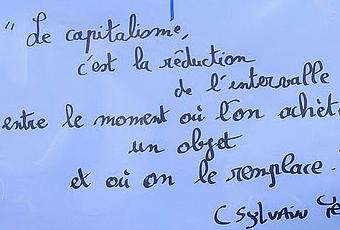 " Le capitalisme,
c'est la réduction
de l'intervalle
entre le moment où l'on achèt
un objet
et où on le remplace.
(Sylvain